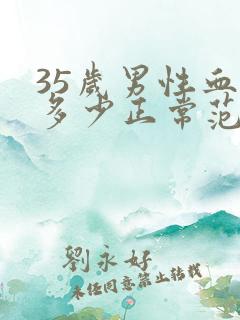 35歲男性血
多少正常范
劉永好
未经同意禁止转载